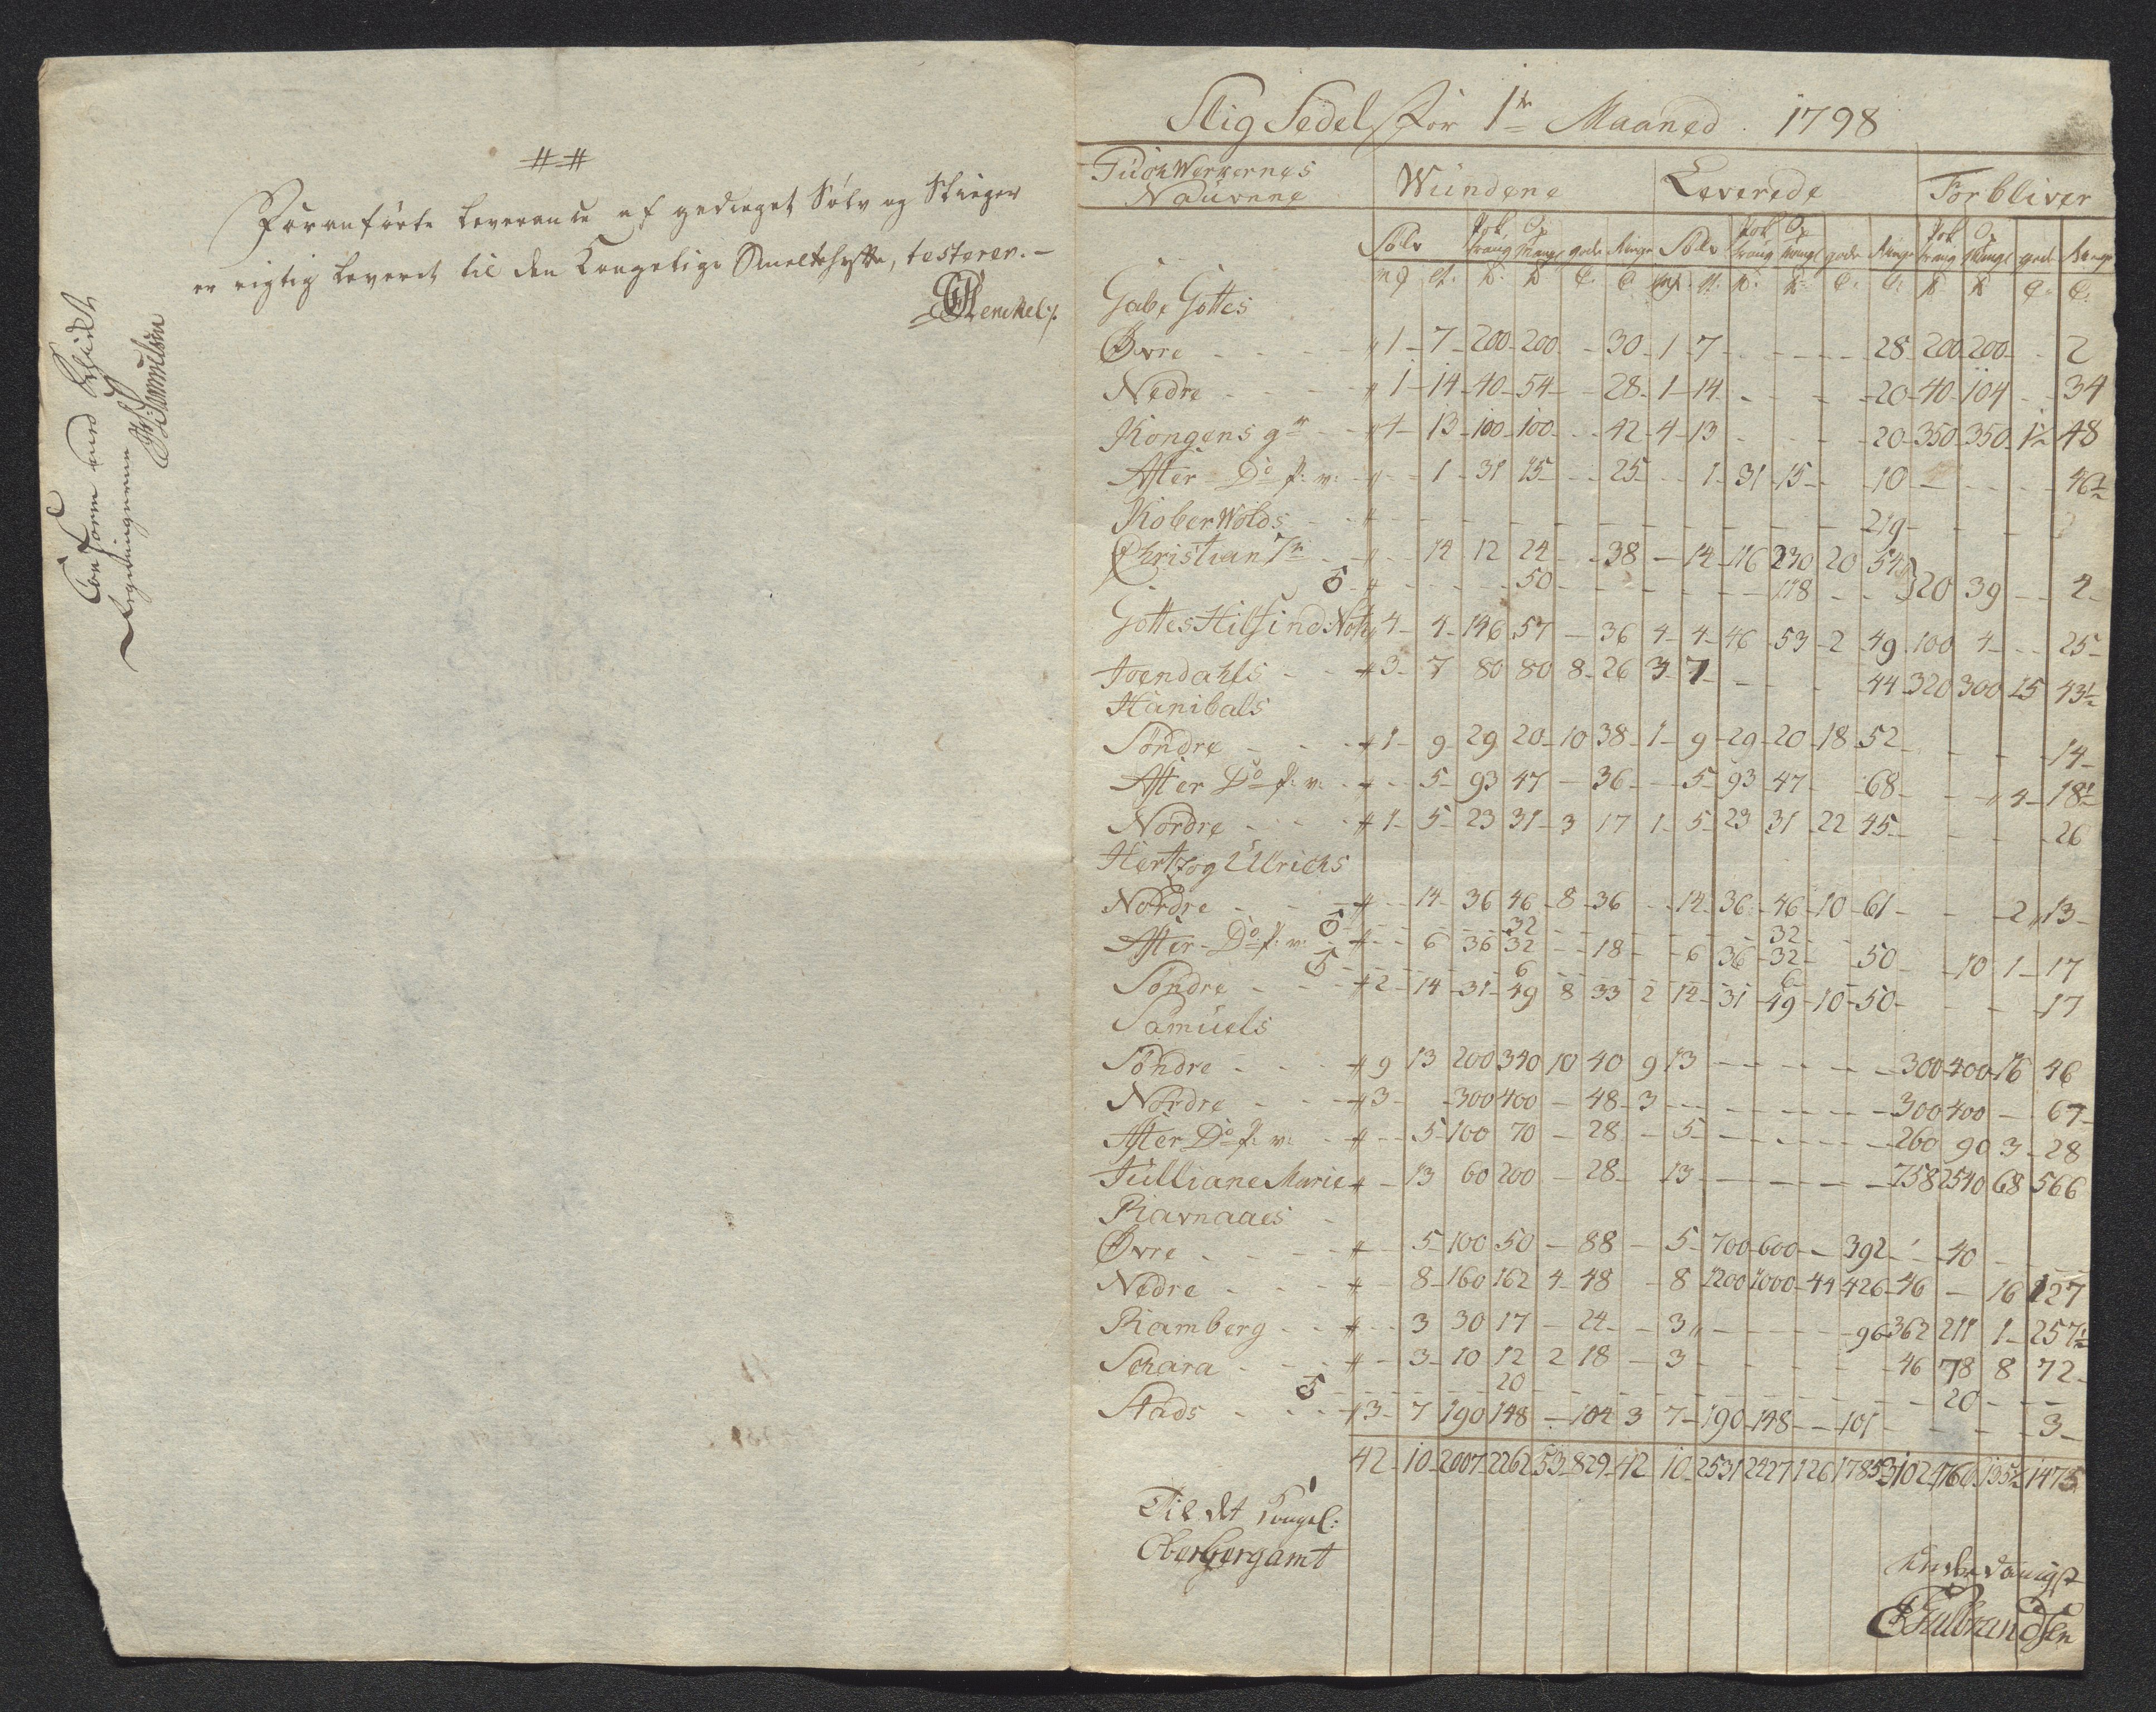 ##
Foranførte Leverance af gedieget Sølv og Slieger
er rigtig leveret til den Kongelige Smeltehytte, testerer.-
Henckel
Conform med
Slig Sedel for 1te Maaned 1798
PuchWerkernes Naúvnne | Wúndene | Leverede | Forbliver
Sölv gode Ringe Sölv gode Ringe gode Ringe
Gabe Gottes
Øvre - - - " 1 - 7 - 200 - 200 - - 30 - 1 - 7 - - - - 28 - 200 200 - - 2
Nedre - - - " 1 - 14 - 40 - 54 - - 28 - 1 - 14 - - - - 20 - 40 - 104 - - 34
Kongens gr - - " 4 - 13 - 100 - 100 - - 42 - 4 - 13 - - - - 20 - 350 350 - 1½ 48
After Do p: v: - " - - 1 - 31 15 - - 25 - - 1 - 31 - 15 - - 10 - - - - 46½
KoberWolds - - " - - - - - - - - - - - 219 - - -
Christian 7de - - " - - 14 12 24 - - 38 - 14 - 116 230 20 54
- - - - 50 - - - - - - 118 - - 320 39 - - 2 -
Gottes Hilf in d: Noth " 4 - 4 - 146 57 - 36 4 - 4 - 46 - 53 - 2 49 100 4 - - 25 -
Juendahls - - # 3 - 7 80 80 8 - 26 3 - 7 - - - - 44 - 320 300 15 43½
Hanibals
Söndre - - - # 1 - 9 - 29 20 - 10 38 - 1 - 9 - 29 - 20 - 18 52 - - - - 14 -
After Do p: v: - # - - 5 - 93 47 - 36 - - 5 - 93 47 - - 68 - - - 4 - 18½
Nordre - - - # 1 - 5 - 23 31 - 3 17 1 - 5 - 23 31 - 22 45 - - - - 26
Hertzog Ulrichs
Nordre - - - # - - 14 - 36 46 - 8 - 36 - - 14 - 36 - 46 - 10 - 61 - - - 2 " 13 -
- - - 32 - - - - - - 32 - -
After Do p: v: - # - - 6 36 32 - - 18 - - 6 36 - 32 - 50 - - 10 1 - 17
- - - 6 - - - - - - 6
Söndre - - - # 2 - 14 - 31 - 49 8 33 2 14 - 31 - 49 - 10 - 50 - - - - 17
Samúels
Söndre - - - # 9 13 200 340 10 40 9 13 - - - - - 300 400 16 46
Nordre - - - # 3 - - 300 400 - 48 - 3 - - - - - - 300 400 - - 67 -
After Do p: v: - # - - 5 - 100 70 - 28 - - 5 - - - - - 260 90 3 - 28
Júlliane Marie # - 13 60 200 - 28 - 13 - - - - - 758 2540 68 566
Ravnaaes -
Øvre - - - # - - 5 - 100 50 - 88 - 5 - 700 - 600 - - 392 - - 40 - - -
Nedre - - - # - - 8 - 160 162 4 - 48 - 8 1200 1000 - 44 426 - 46 - 16 127
Ramberg - - # - - 3 30 17 - 24 - - 3 " - - - - 96 362 211 1 - 257½
Schara - - - # - - 3 - 10 12 2 18 - 3 - - - - - 46 78 8 72 -
- - - 20 - - - - - - - - - - 20 - - -
Stads - - - # 3 - 7 190 148 - 104 3 7 - 190 - 148 - - 101 - - - - 3 -
42 - 10 - 2007 - 2262 53 - 829 - 42 10 - 2531 2427 126 1785 3102 4766 135½ 1475
Til det kongel:
Oberbergamt
Underdanigst
Gulbrandsen